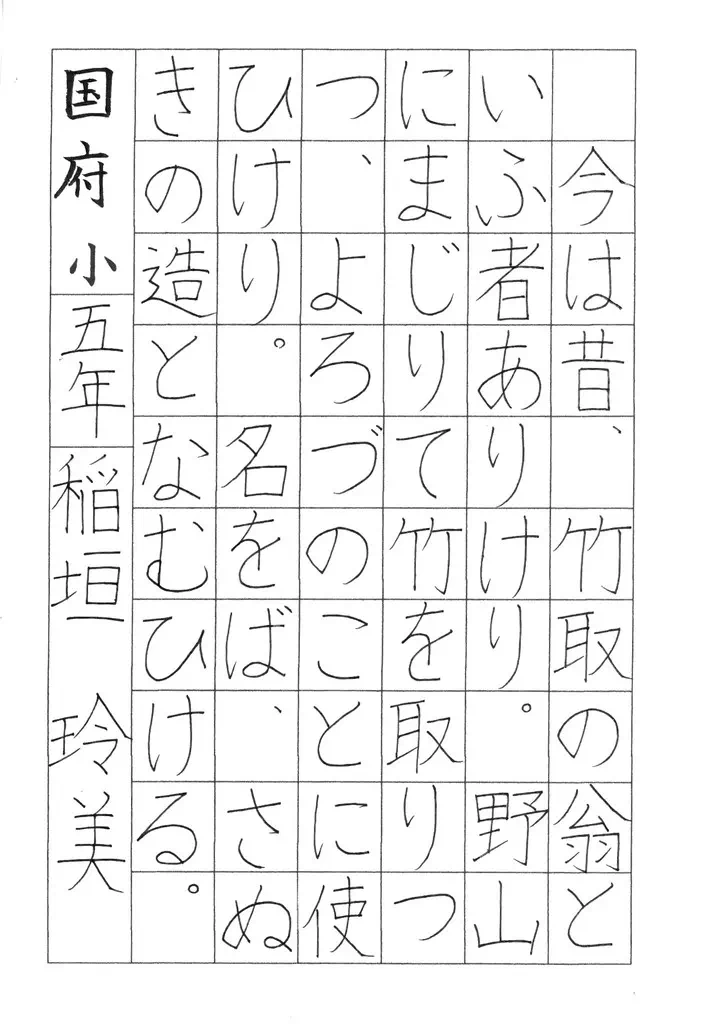 今は昔、竹取の翁と
いふ者ありけり。野山
にまじりて竹を取りつ
つ、よろづのことに使
ひけり。名をば、さぬ
きの造となむひける。
国府小 五年 稲垣 玲美